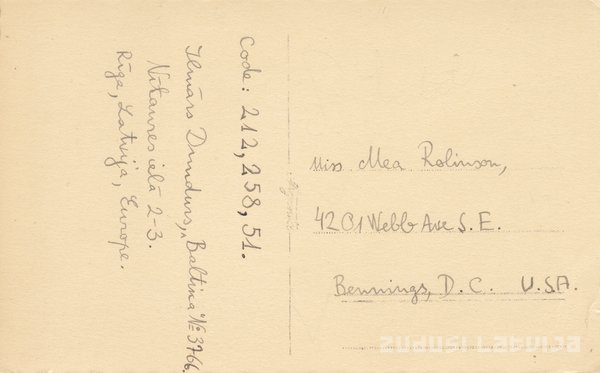 Code: 212,258,51.
Ilmārs Dundurs, "Baltica" № 3766
Vitaures ielā 2-3.
Rīga, Latvija, Europe.
Miss Mea Robinson,
4201 Webb Ave S.E.
Bennings, D.C. U.S.A.